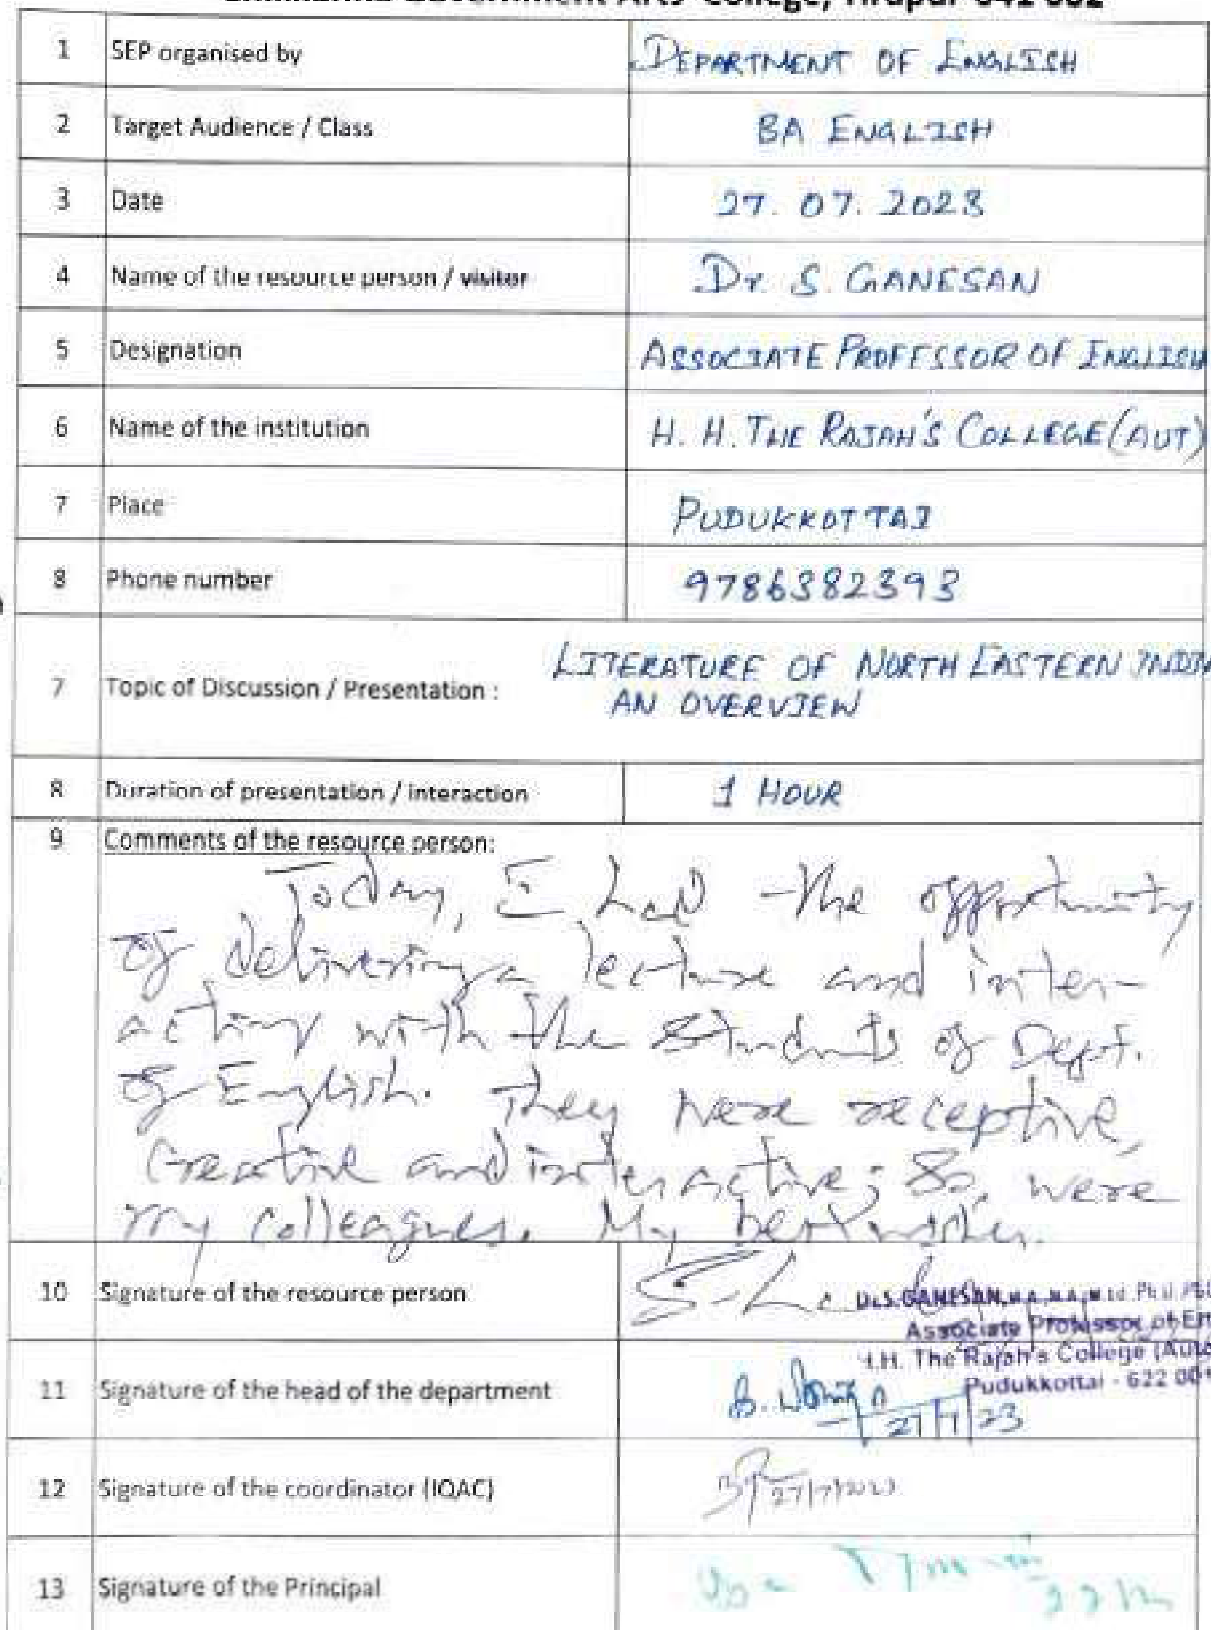 Government Arts College, Tirupur 641 602
1 SEP organised by DEPARTMENT OF ENGLISH
2 Target Audience / Class BA ENGLISH
3 Date 27. 07. 2023
4 Name of the resource person / visitor Dr. S. GANESAN
5 Designation ASSOCIATE PROFESSOR OF ENGLISH
6 Name of the institution H. H. THE RAJAH'S COLLEGE (AUT)
7 Place PUDUKKOTTAI
8 Phone number 9786382393
7 Topic of Discussion / Presentation : LITERATURE OF NORTH EASTERN INDIA
AN OVERVIEW
8 Duration of presentation / interaction 1 HOUR
9 Comments of the resource person:
Today, I had the opportunity
of delivering a lecture and inter-
acting with the students of Dept.
of English. They were receptive,
Creative and interactive; So, were
my colleagues. My best wishes.
10 Signature of the resource person
Dr.S.GANESAN, M.A., M.A., M.Ed., Ph.D.
Associate Professor of En
H.H. The Rajah's College (Auto
Pudukkottai - 622 001
11 Signature of the head of the department
27/7/23
12 Signature of the coordinator (IQAC)
27/7/2023
13 Signature of the Principal